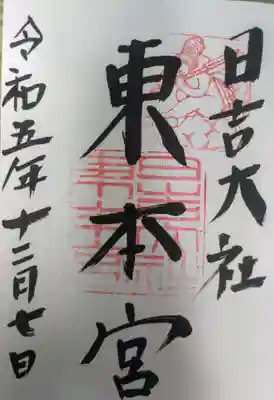 日吉大社
東本宮
令和五年十二月七日